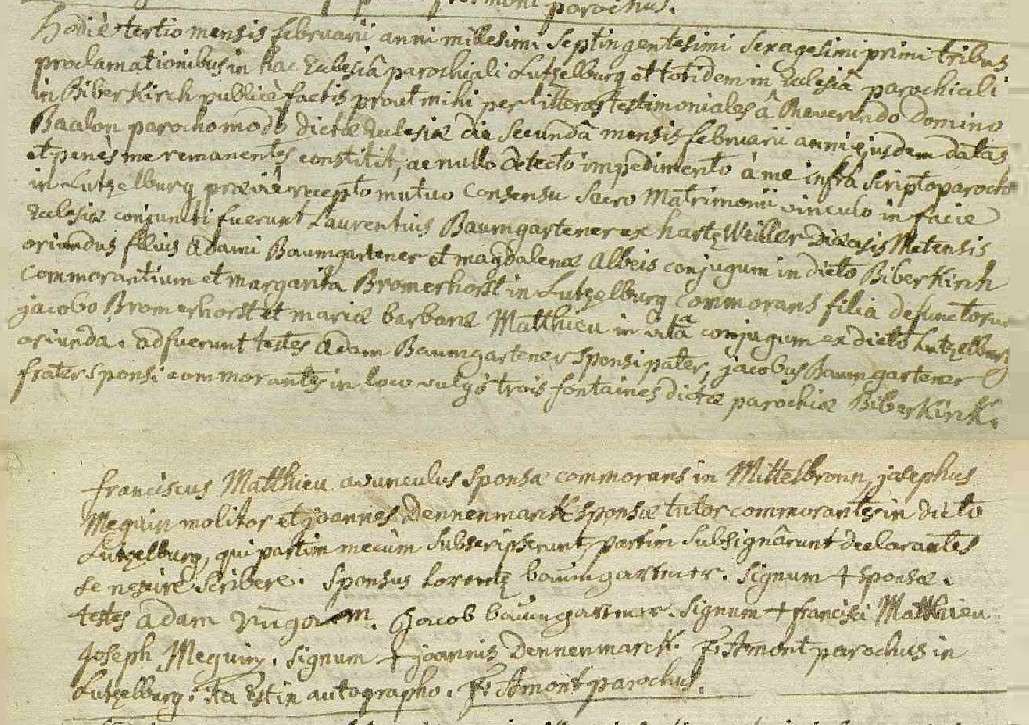 parochus.
Hodie tertio mensis februarii anni millesimi septingentesimi sexagesimi primi tribus
proclamationibus in hac Eclesiâ parochiali Lutzelburg et totidem in Eclesiâ parochiali
in Biberkirch publicè factis prout mihi per litteras testimoniales â Reverendo Domino
Baalon parocho modo dictæ Eclesiæ die secundâ mensis februarii anni ejusdem datas
et penès me remanentes constitit, ac nullo detecto impedimento â me infrà scripto parocho
in Lutzelburg præviè recepto mutuo consensu sacro Matrimonii vinculo in facie
Eclesiæ conjuncti fuerunt Laurentius Baumgartener ex hartzweiller diœcesis Metensis
oriundus filius adami Baumgartener et magdalenæ Albeis conjugum in dicto Biberkirch
Commorantium et margarita Bromerhorst in Lutzelburg commorans filia defunctorum
jacobo Bromerhorst et mariæ barbaræ Matthieu in vitâ conjugum ex dicto Lutzelburg
oriunda. adfuerunt testes adam Baumgartener sponsi pater, jacobus Baumgartener
frater sponsi commorantes in loco vulgò trois fontaines dictæ parochiæ Biberkirk.
franciscus Matthieu avunculus sponsæ commorans in Mittelbronn, josephus
Mequin molitor et joannes Dennenmarck sponsæ tutor commorantes in dicto
Lutzelburg, qui partim mecùm subscripserunt, partim subsignârunt declarantes
se nescire scribere. sponsus Lorentz baumgartner. signum + sponsæ.
testes adam. Jacob baumgartner. signum + francisci Matthieu.
Joseph Mequin. signum + joannis Dennenmarck. f. Amont parochus in
Lutzelburg. ita est in autographo. f. Amont parochus.